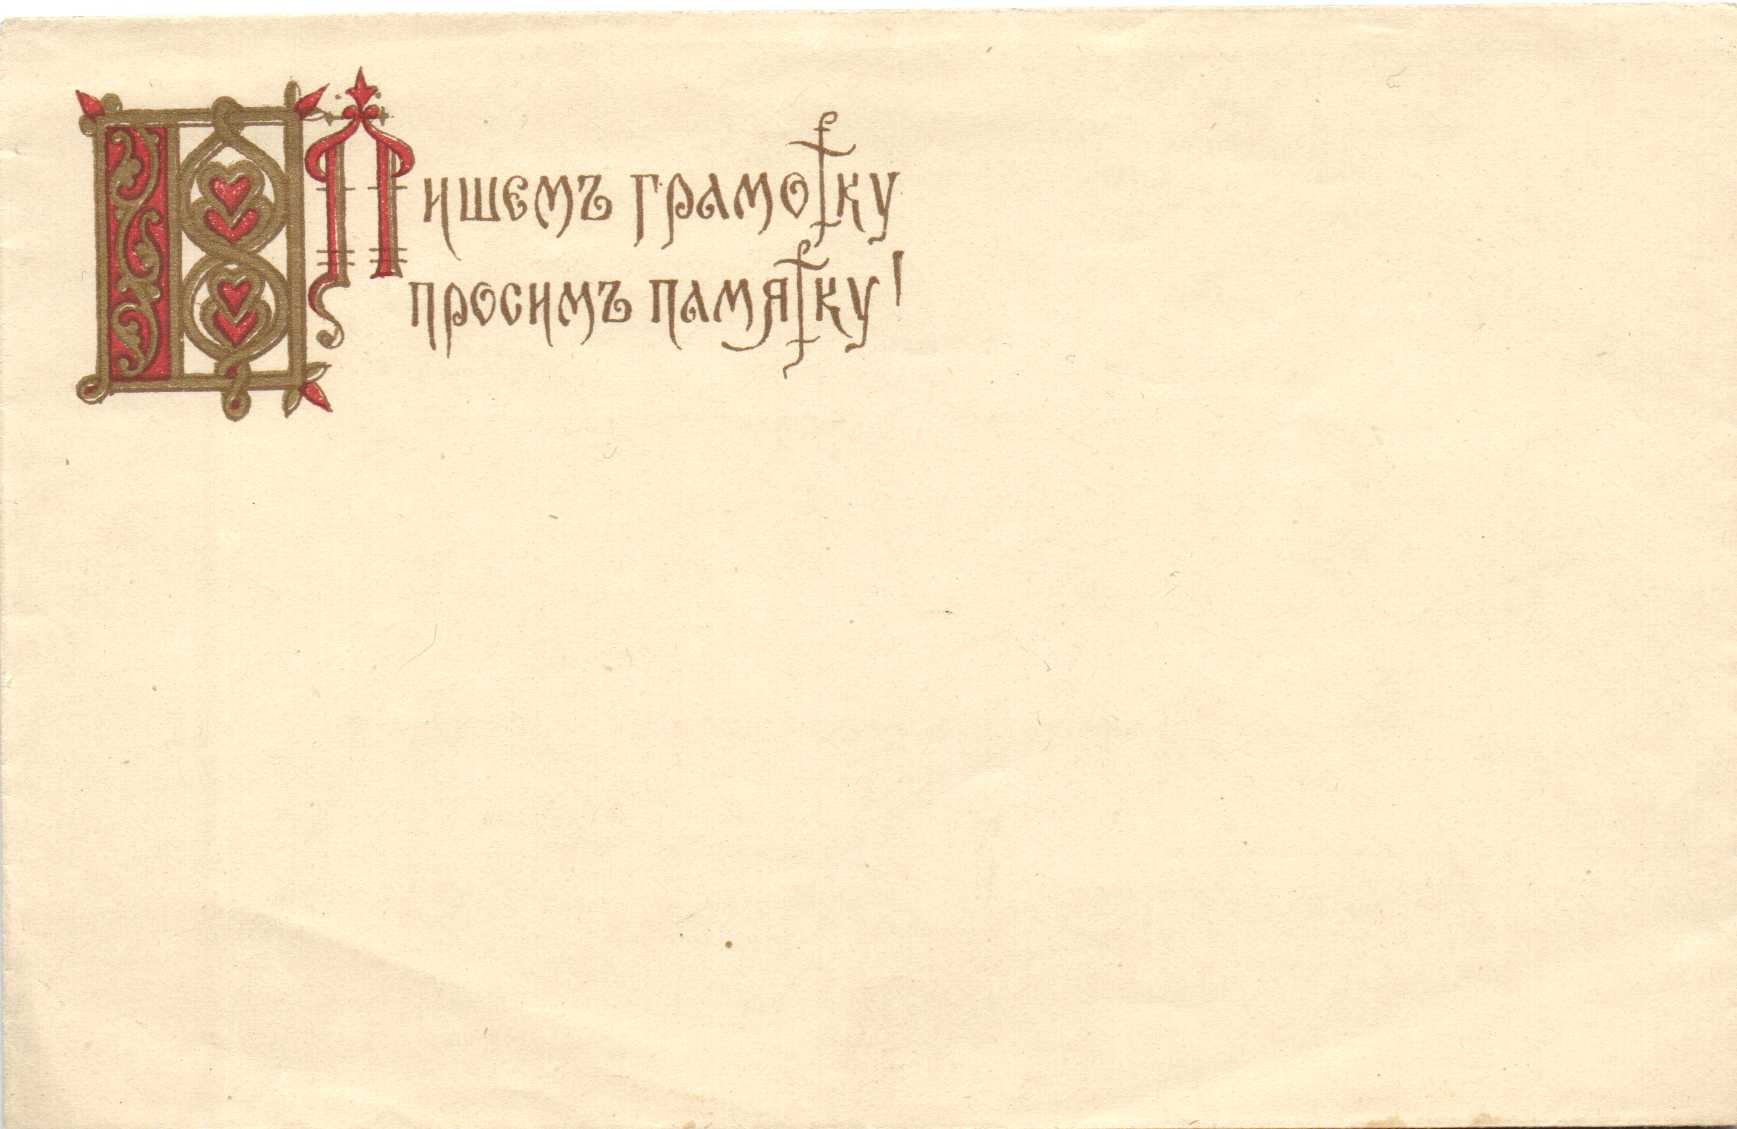 Пишемъ грамотку
просимъ памятку!